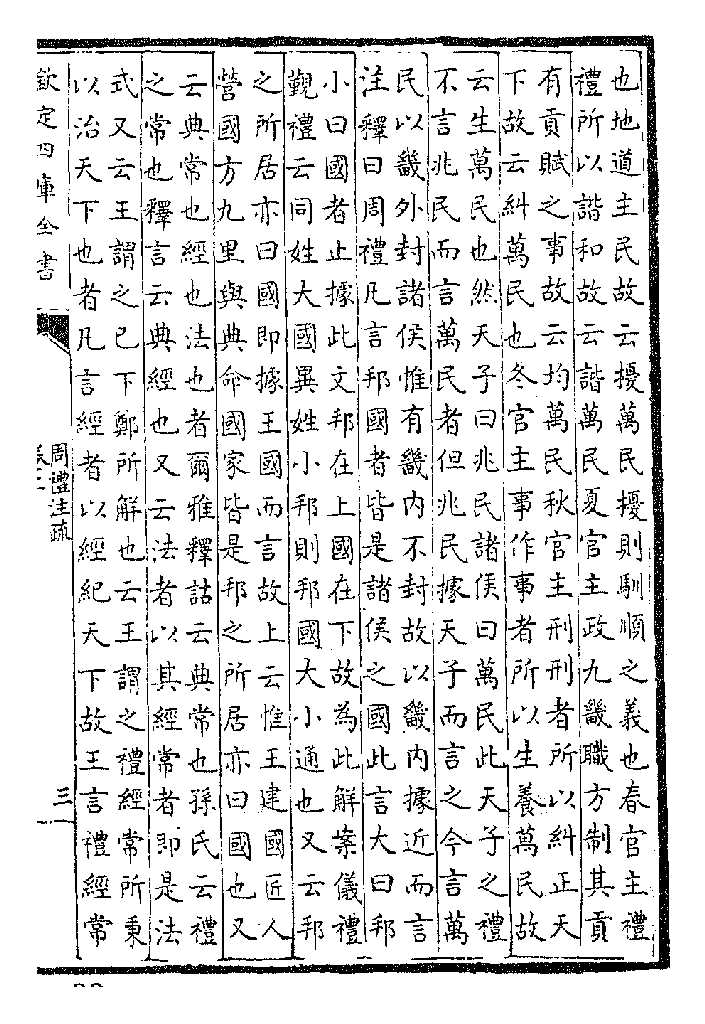 也地道主民故云擾萬民擾則馴順之義也春官主禮
禮所以諧和故云諧萬民夏官主政九畿職方制其貢
有貢賦之事故云均萬民秋官主刑刑者所以糾正天
下故云糾萬民也冬官主事作事者所以生養萬民故
云生萬民也然天子曰兆民諸侯曰萬民此天子之禮
不言兆民而言萬民者但兆民據天子而言之今言萬
民以畿外封諸侯惟有畿内不封故以畿内據近而言
注釋曰周禮凡言邦國者皆是諸侯之國此言大曰邦
小曰國者止據此文邦在上國在下故為此解案儀禮
覲禮云同姓大國異姓小邦則邦國大小通也又云邦
之所居亦曰國即據王國而言故上云惟王建國匠人
營國方九里與典命國家皆是邦之所居亦曰國也又
云典常也經也法也者爾雅釋詁云典常也孫氏云禮
之常也釋言云典經也又云法者以其經常者即是法
式又云王謂之已下鄭所解也云王謂之禮經常所秉
以治天下也者凡言經者以經紀天下故王言禮經常
欽定四庫全書
周禮注疏
卷二
三